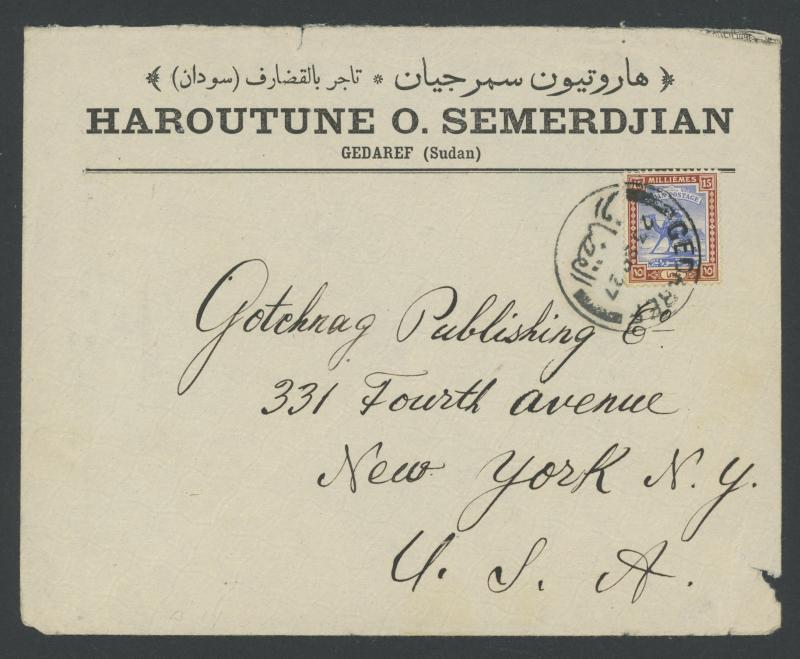 هاروتيون سمرجيان * تاجر بالقضارف (سودان)
HAROUTUNE O. SEMERDJIAN
GEDAREF (Sudan)
15 MILLIÈMES 15
POSTAGE
١٥ ١٥
GEDAREF
27
القضارف
Gotchnag Publishing Co
331 Fourth avenue
New York N. Y.
U. S. A.